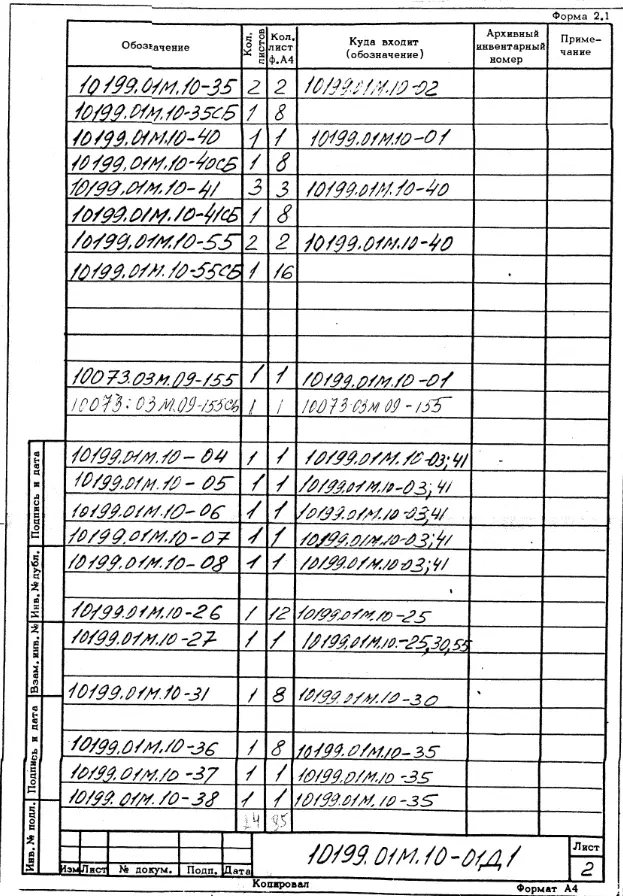 Форма 2.1
Обозначение Кол. листов Кол. лист ф.А4 Куда входит (обозначение) Архивный инвентарный номер Приме-чание
10199.01М.10-35 2 2 10199.01М.10-02
10199.01М.10-35СБ 1 8
10199.01М.10-40 1 1 10199.01М.10-01
10199.01М.10-40СБ 1 8
10199.01М.10-41 3 3 10199.01М.10-40
10199.01М.10-41СБ 1 8
10199.01М.10-55 2 2 10199.01М.10-40
10199.01М.10-55СБ 1 16
10073.03М.09-155 1 1 10199.01М.10-01
10073.03М.09-155СБ 1 1 10073.03М.09-155
10199.01М.10-04 1 1 10199.01М.10-03;41
10199.01М.10-05 1 1 10199.01М.10-03;41
10199.01М.10-06 1 1 10199.01М.10-03,41
10199.01М.10-07 1 1 10199.01М.10-03;41
10199.01М.10-08 1 1 10199.01М.10-03;41
10199.01М.10-26 1 12 10199.01М.10-25
10199.01М.10-27 1 1 10199.01М.10-25,30,55
10199.01М.10-31 1 8 10199.01М.10-30
10199.01М.10-36 1 8 10199.01М.10-35
10199.01М.10-37 1 1 10199.01М.10-35
10199.01М.10-38 1 1 10199.01М.10-35
Подпись и дата
Инв.№ дубл.
Взам.инв.№
Подпись и дата
Инв.№ подл.
Изм Лист № докум. Подп. Дата
10199.01М.10-01Д1
Лист
2
Копировал
Формат А4